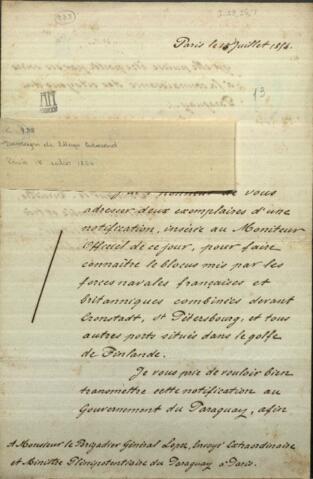 Paris le 15 Juillet 1854.
13
Paris 15 juillet 1854
J'ai l'honneur de vous
adresser deux exemplaires d'une
notification, insérée au Moniteur
Officiel de ce jour, pour faire
connaître le blocus mis par les
forces navales françaises et
britanniques combinées devant
Cronstadt, St Pétersbourg, et tous
autres ports situés dans le golfe
de Finlande.
Je vous prie de vouloir bien
transmettre cette notification au
Gouvernement du Paraguay, afin
A Monsieur le Brigadier Général Lopez, Envoyé Extraordinaire
et Ministre Plénipotentiaire du Paraguay à Paris.